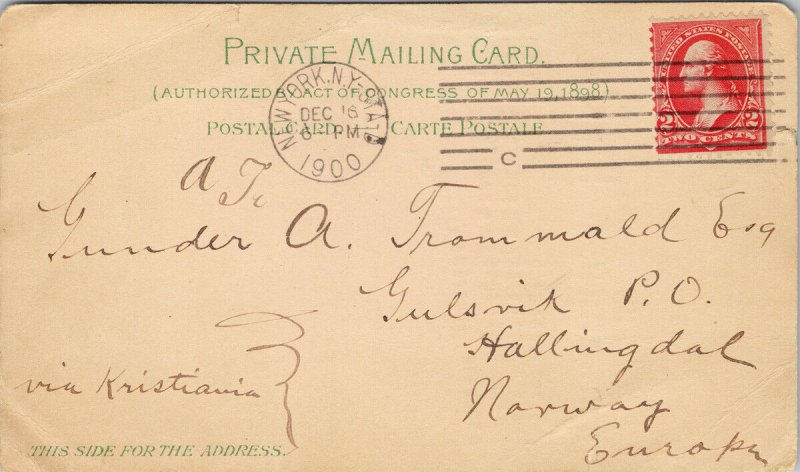 PRIVATE MAILING CARD.
(AUTHORIZED BY ACT OF CONGRESS OF MAY 19, 1898)
POSTAL CARD. CARTE POSTALE.
NEW YORK, N.Y.
DEC 16
6 - PM
1900
C
UNITED STATES POSTAGE
2 2
TWO CENTS
a
Gunder A. Trommald Esq
Gulsvik P.O.
Hallingdal
via Kristiania
Norway
Europa
THIS SIDE FOR THE ADDRESS.